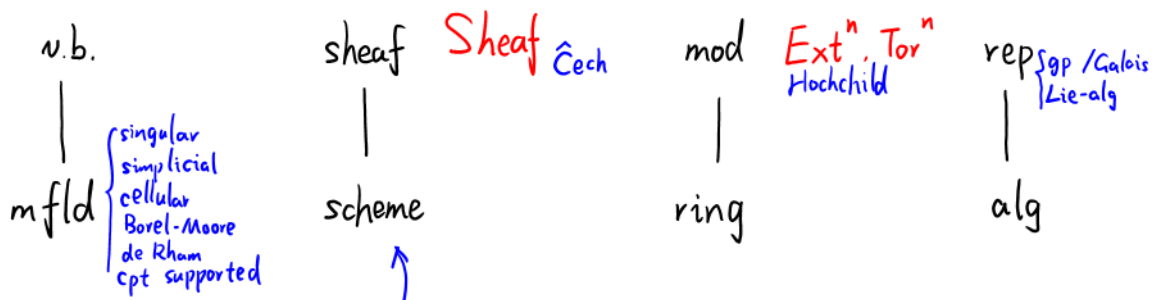 v.b.
sheaf Sheaf Ĉech
mod Extⁿ, Torⁿ
Hochchild
rep { gp /Galois
Lie-alg
mfld { singular
simplicial
cellular
Borel-Moore
de Rham
cpt supported
scheme
ring
alg